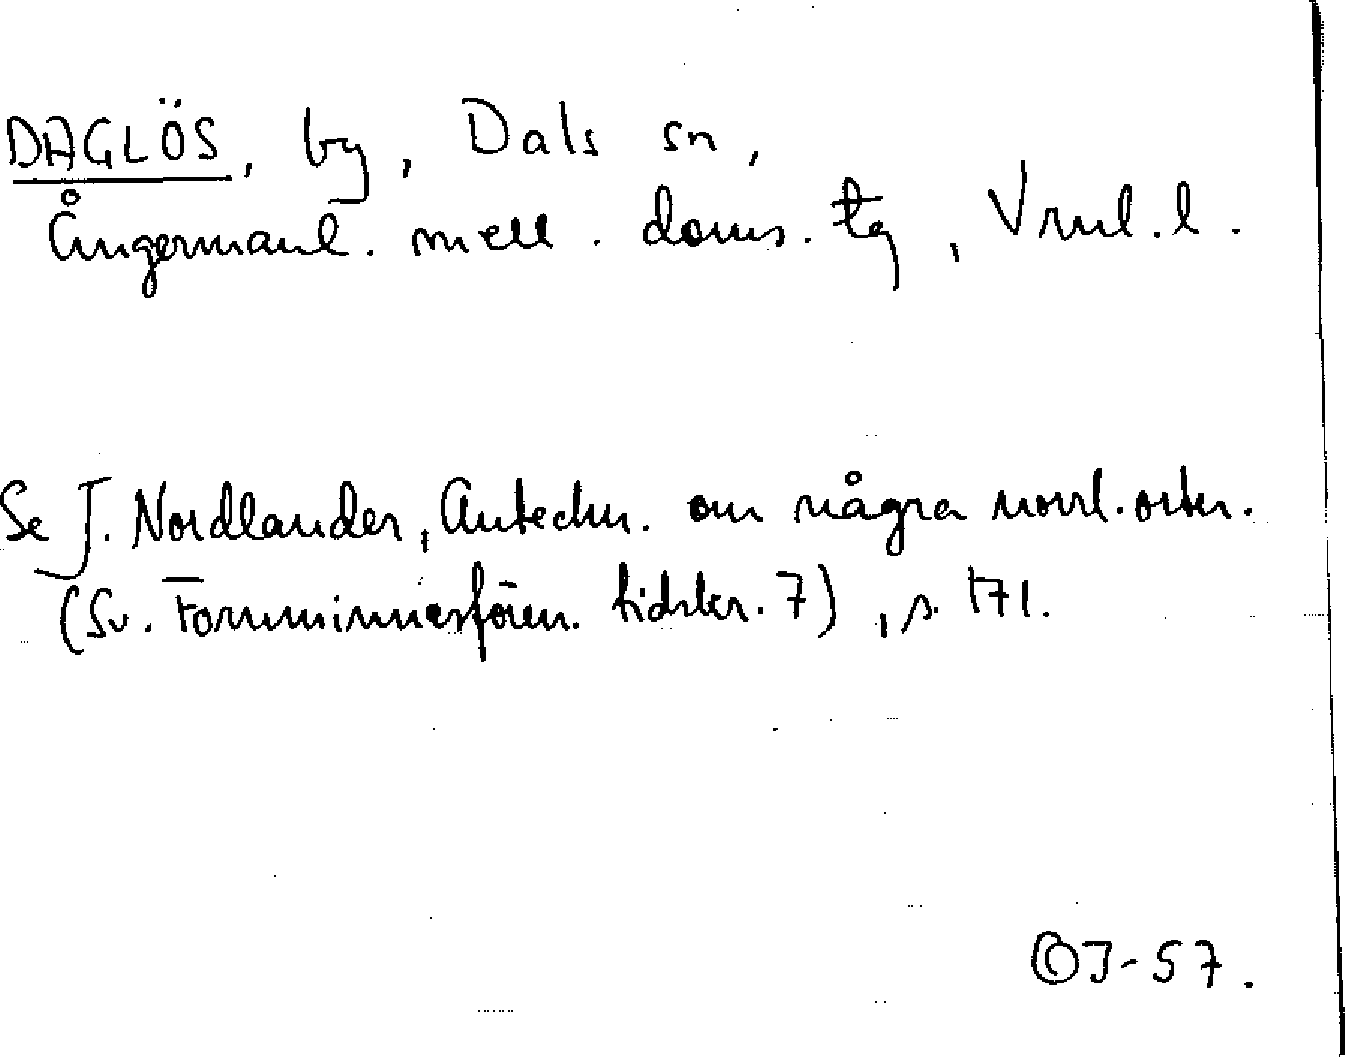 DAGLÖS, by, Dals sn,
Ångermanl. mell. doms. tg, Vrnl. l.
Se J. Nordlander, Anteckn. om några norrl. ortn.
(Sv. Fornminnesfören. tidskr. 7), s. 171.
OJ-57.